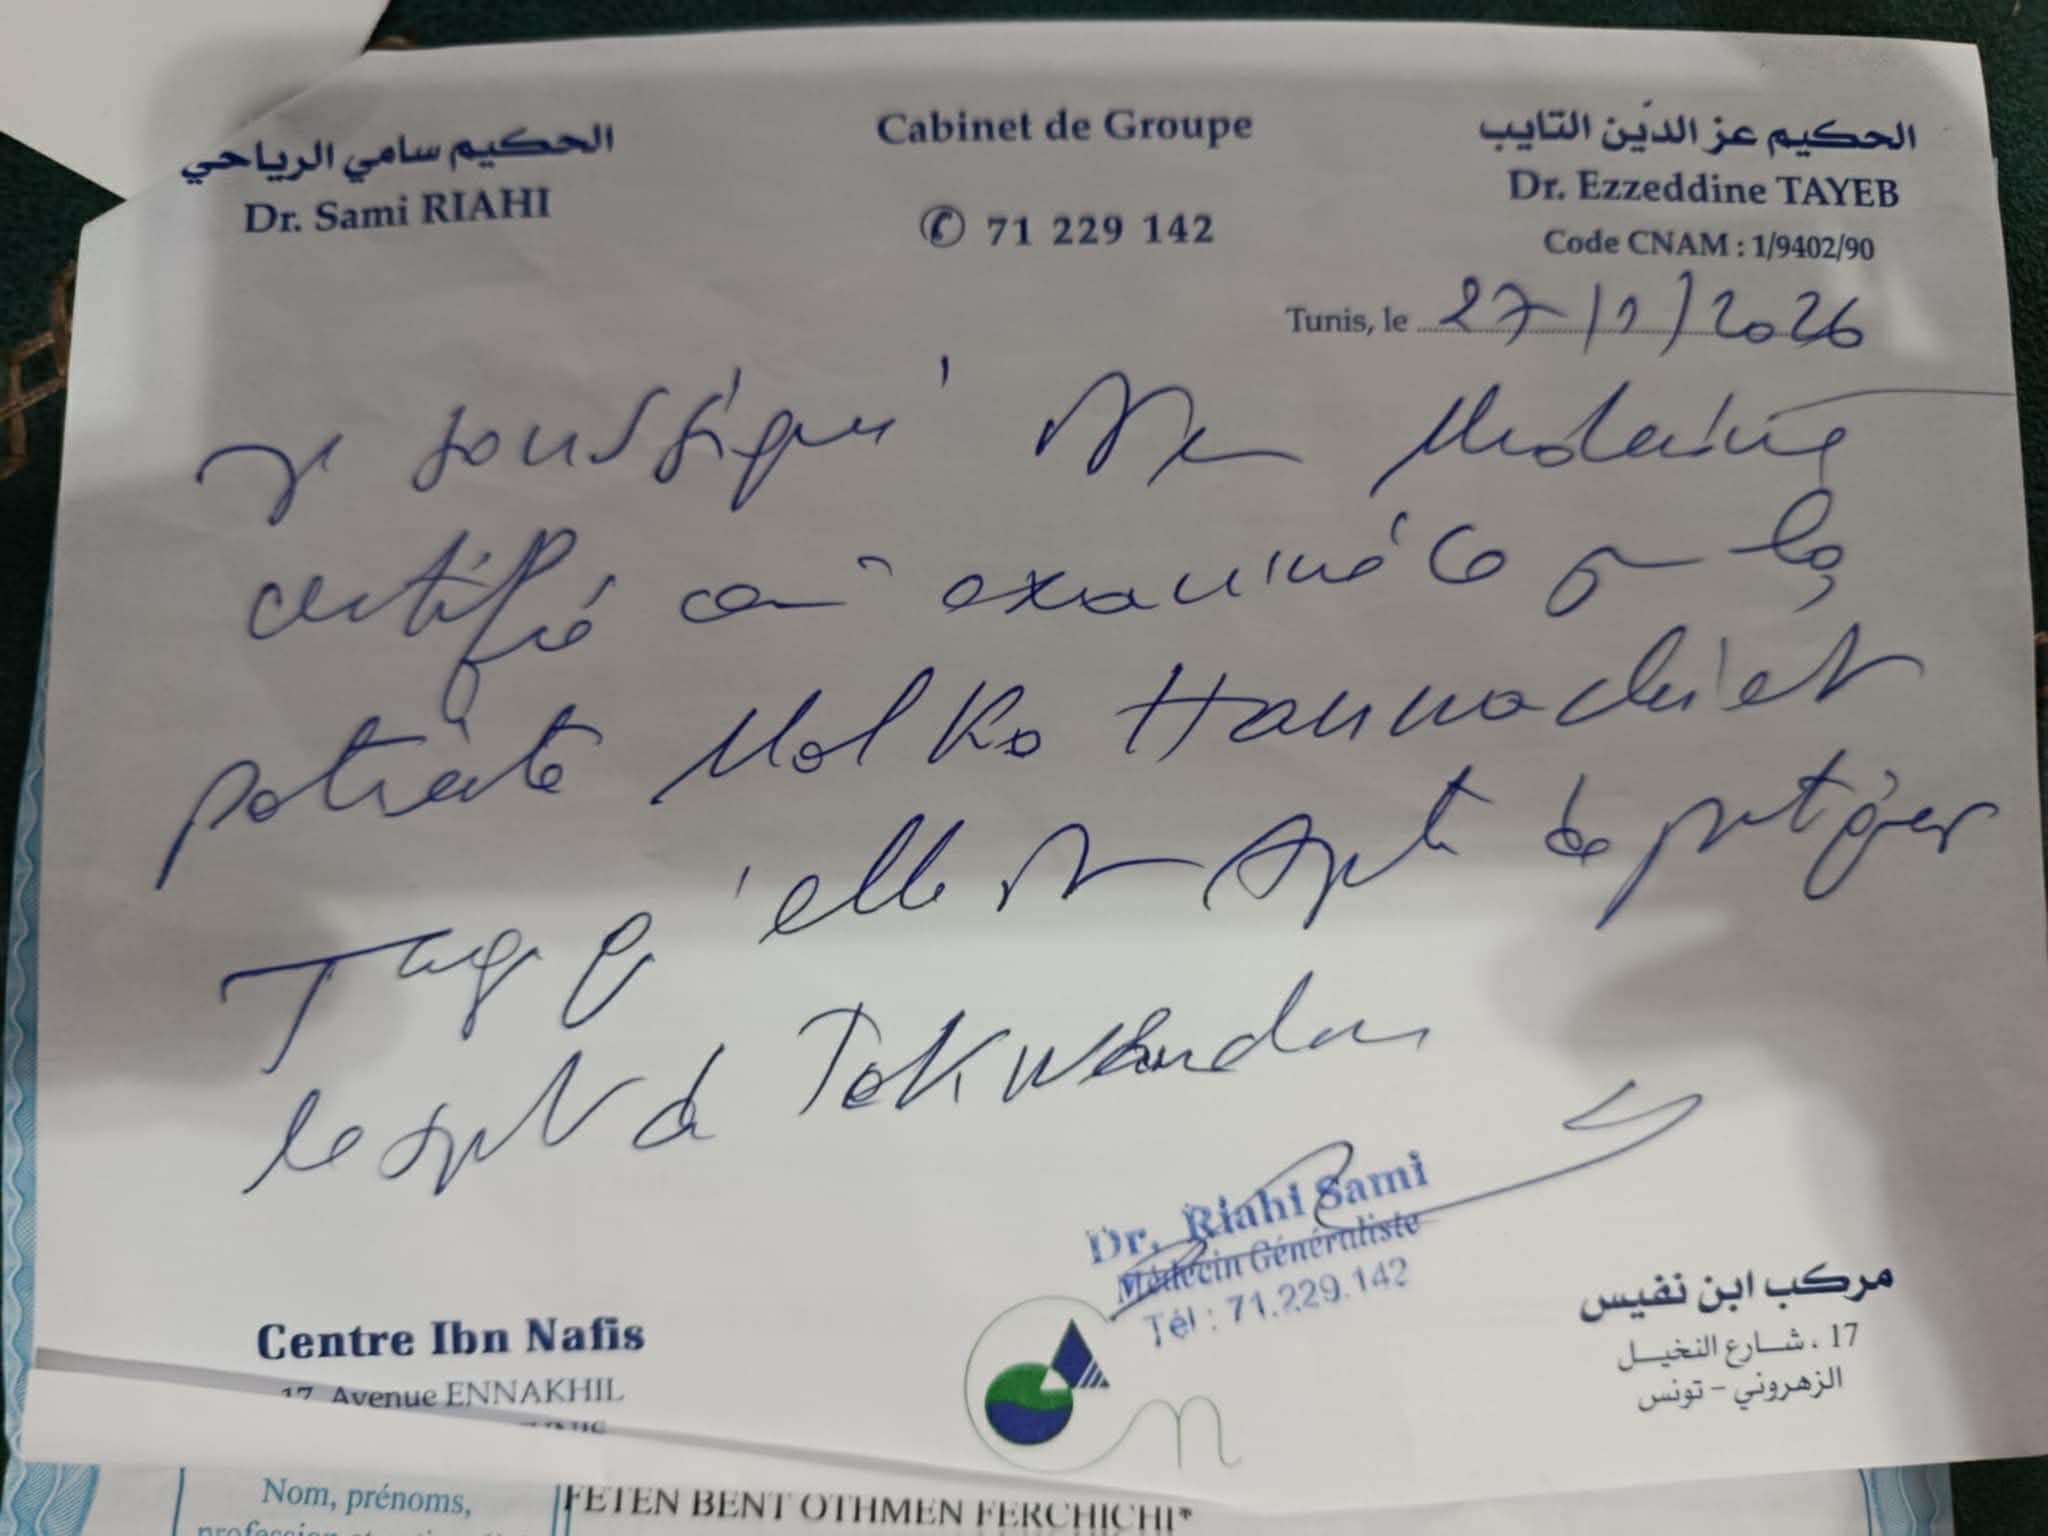 الحكيم سامي الرياحي
Dr. Sami RIAHI
Cabinet de Groupe
✆ 71 229 142
الحكيم عز الدّين التايب
Dr. Ezzeddine TAYEB
Code CNAM : 1/9402/90
Tunis, le 27/1/2026
Je soussigné Dr en Médecine
certifié avoir examiné ce jour la
patiente Molka Hannachi et
qu'elle est apte de pratiquer
le sport de Tekwendou
Dr. Riahi Sami
Médecin Généraliste
Tél : 71.229.142
Centre Ibn Nafis
17, Avenue ENNAKHIL
مركب ابن نفيس
17 ، شارع النخيل
الزهروني - تونس
Nom, prénoms,
FETEN BENT OTHMEN FERCHICHI*